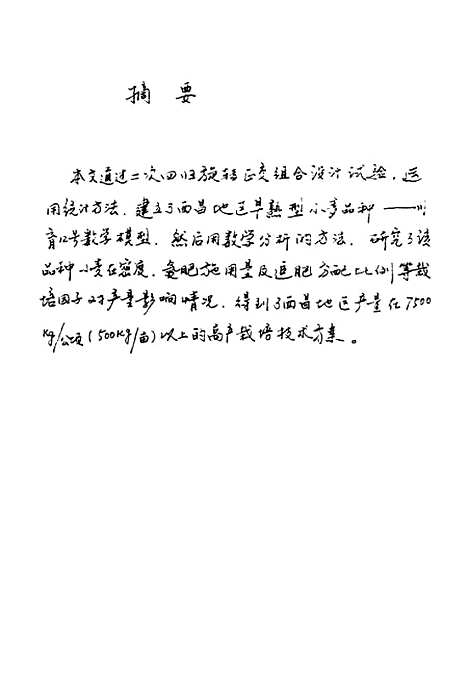 摘 要
本文通过二次回归旋转正交组合设计试验，运
用统计方法，建立了西昌地区早熟型小麦品种——川
育12号数学模型，然后用数学分析的方法，研究了该
品种小麦在密度、氮肥施用量及追肥分配比例等栽
培因子对产量影响情况，得到了西昌地区产量在7500
kg/公顷(500kg/亩)以上的高产栽培技术方案。